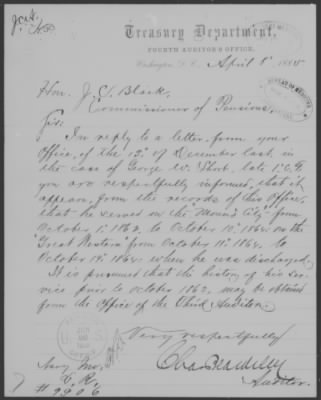 Treasury Department,
FOURTH AUDITOR'S OFFICE,
Washington, D. C., April 8, 1885
Hon. J. C. Black,
Commissioner of Pensions,
Sir:
In reply to a letter from your
Office, of the 13" of December last, in
the case of George W. Short, late 1" C. F.
you are respectfully informed, that it
appears from the records of this Office,
that he served on the "Mound City" from
October 1" 1862, to October 10" 1864 on the
"Great Western" from October 11" 1864, to
October 19" 1864 when he was discharged.
It is presumed that the history of his ser-
vice prior to October 1862, may be obtained
from the Office of the Third Auditor.
Very respectfully
Auditor.
Navy Inv.
# 9906